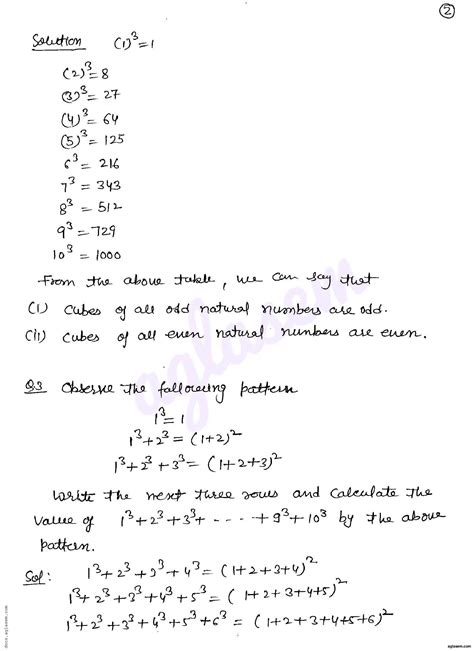 2
Solution (1)³=1
(2)³=8
(3)³= 27
(4)³= 64
(5)³= 125
6³ = 216
7³ = 343
8³ = 512
9³ = 729
10³ = 1000
From the above table, we can say that
(i) cubes of all odd natural numbers are odd.
(ii) cubes of all even natural numbers are even.
Q3 Observe the following pattern
1³=1
1³+2³ = (1+2)²
1³+2³+3³ = (1+2+3)²
Write the next three rows and calculate the
value of 1³+2³+3³+ ---- +9³+10³ by the above
pattern.
Sol: 1³+2³+3³+4³ = (1+2+3+4)²
1³+2³+3³+4³+5³ = (1+2+3+4+5)²
1³+2³+3³+4³+5³+6³ = (1+2+3+4+5+6)²
aglasem
docs.aglasem.com
aglasem.com